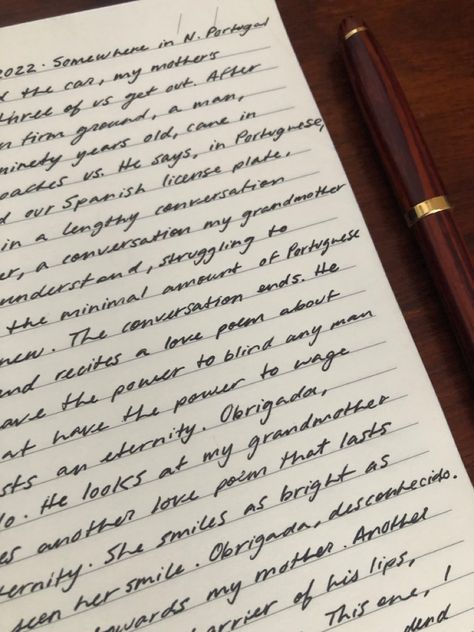 2022. Somewhere in N. Portugal
the car, my mother's
three of us get out. After
n firm ground, a man,
ninety years old, cane in
oaches us. He says, in Portuguese,
d our Spanish license plate.
in a lengthy conversation
er, a conversation my grandmother
understand, struggling to
the minimal amount of Portuguese
new. The conversation ends. He
end recites a love poem about
ave the power to blind any man
at have the power to wage
sts an eternity. Obrigada,
do. He looks at my grandmother
es another love poem that lasts
ternity. She smiles as bright as
seen her smile. Obrigada, desconhecido.
towards my mother. Another
arrier of his lips,
This one, I
dend